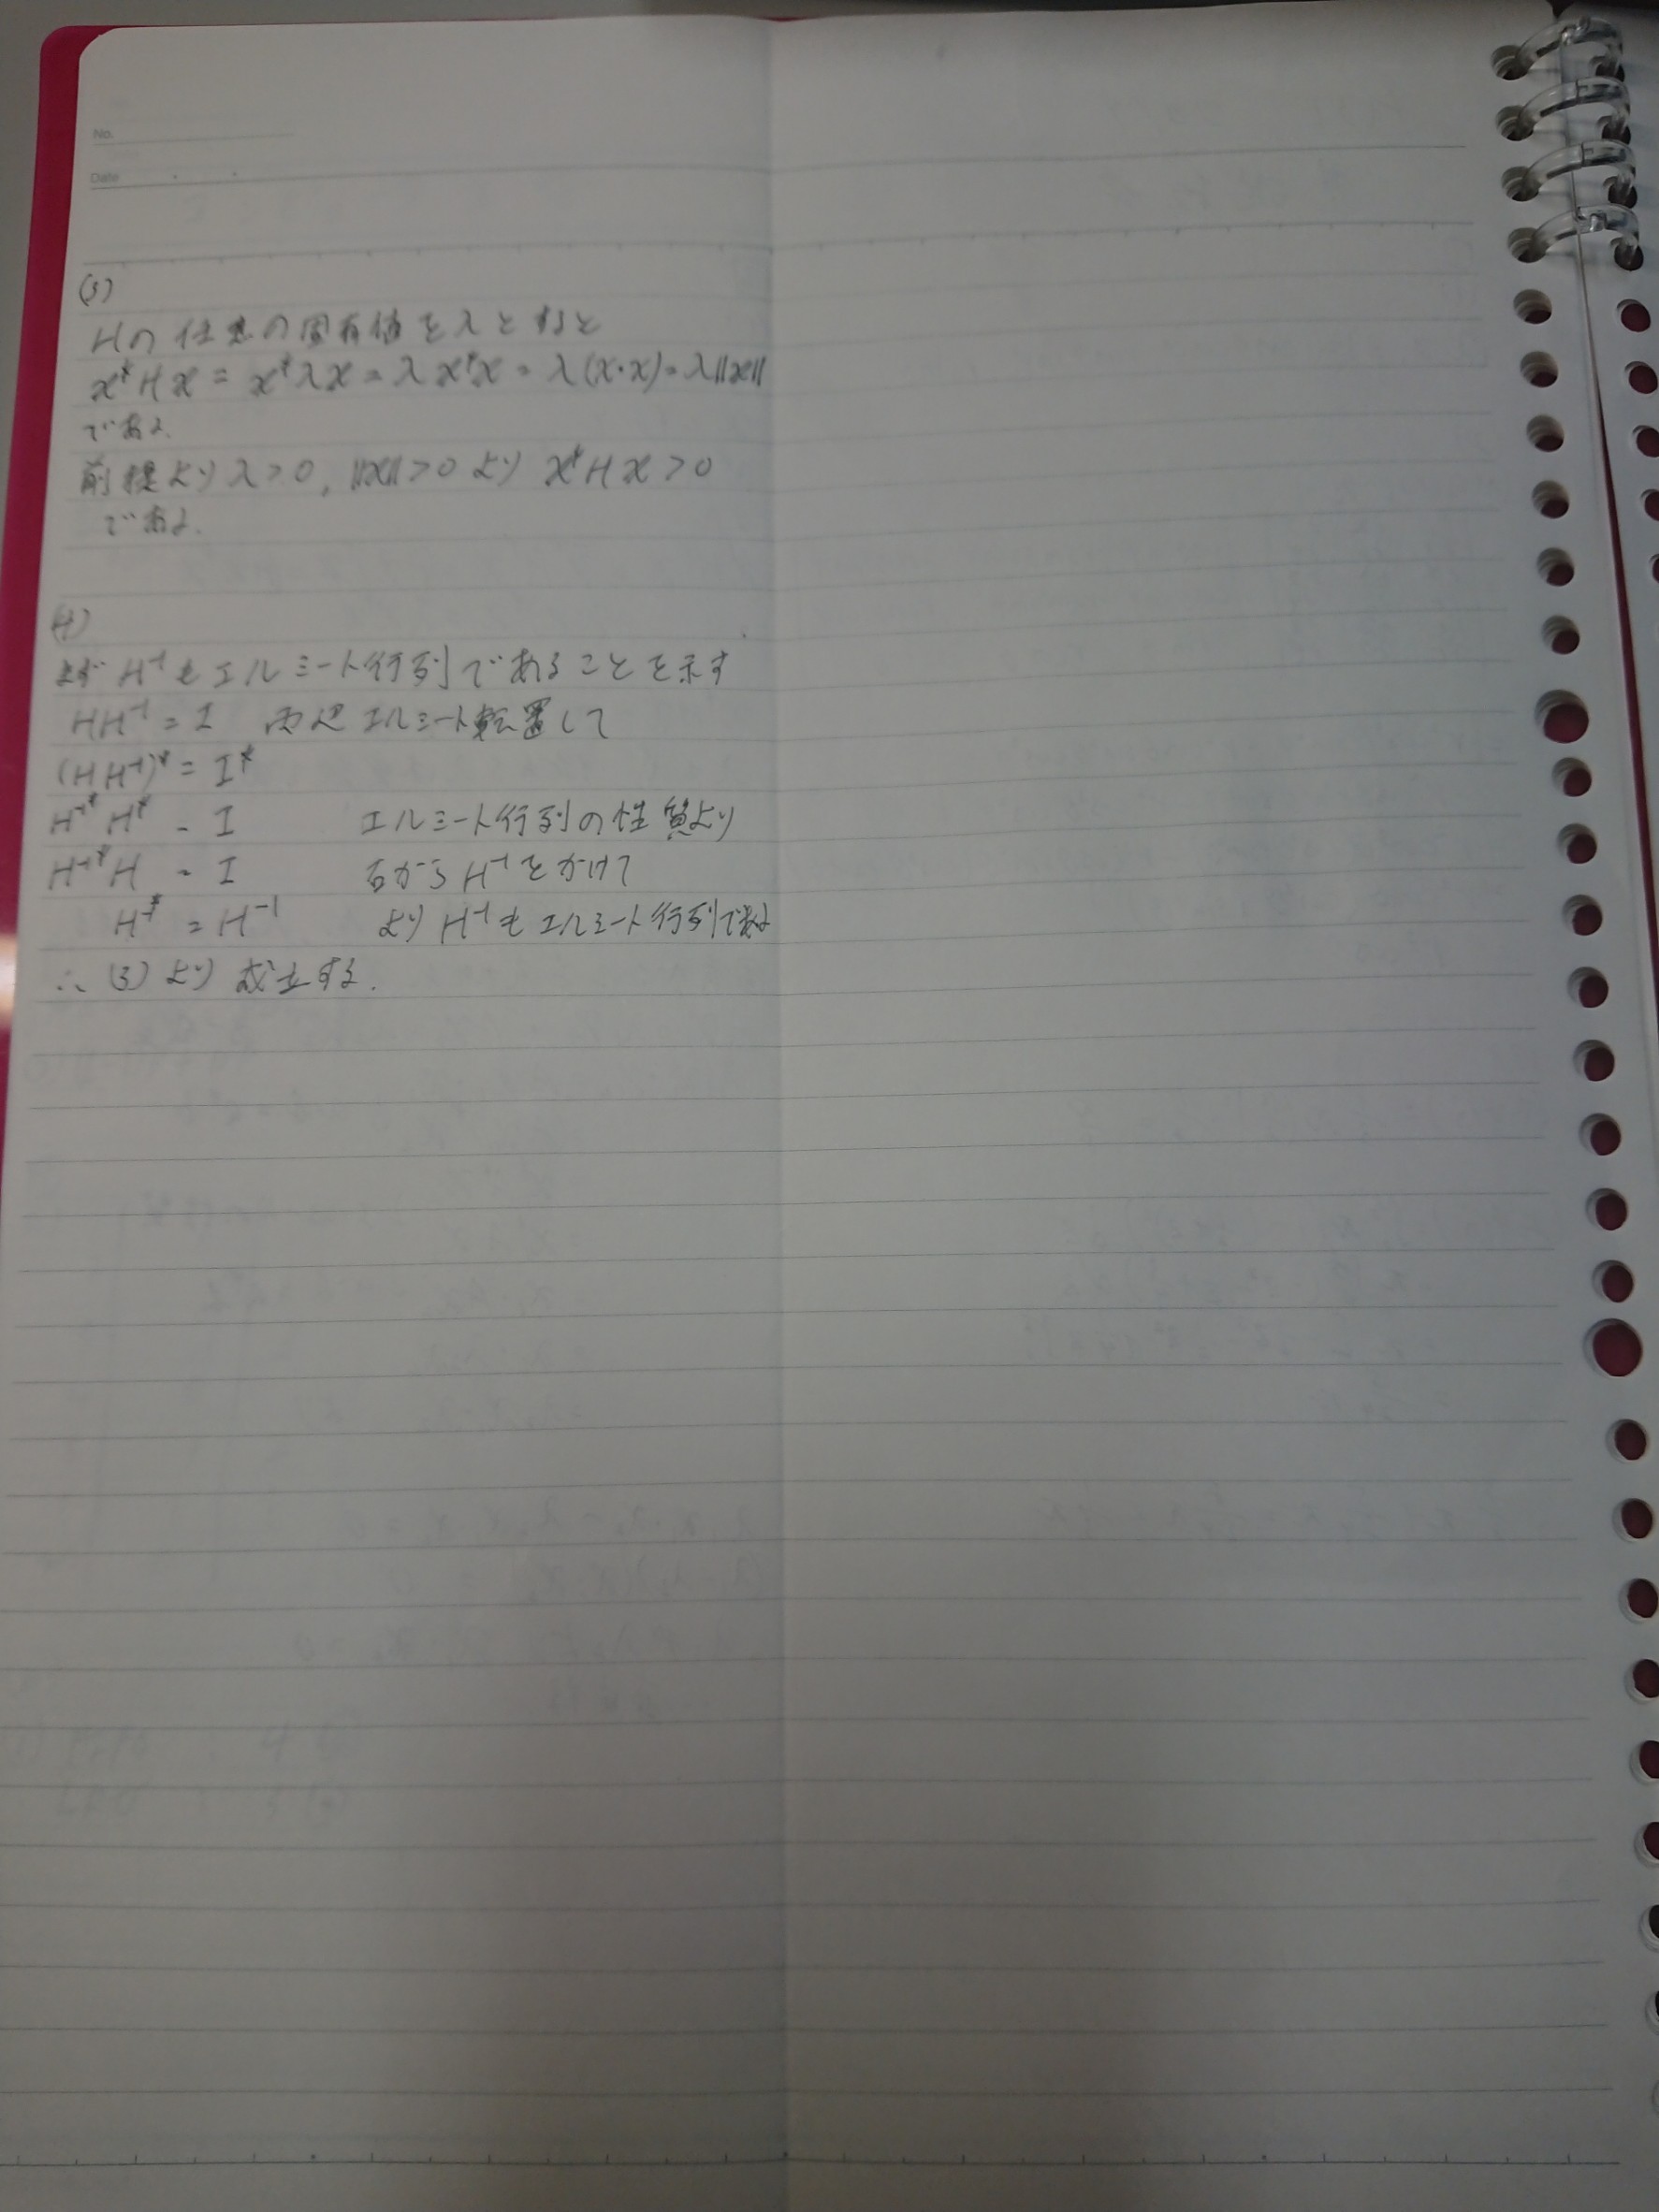 No.
Date
(3)
Hの任意の固有値をλとすると
x*Hx = x*λx = λx*x = λ(x・x) = λ||x||
である.
前提よりλ>0, ||x||>0より x*Hx>0
である.
(4)
まず H⁻¹もエルミート行列であることを示す
HH⁻¹ = I 両辺エルミート転置して
(HH⁻¹)* = I*
H⁻¹* H* = I エルミート行列の性質より
H⁻¹* H = I 右からH⁻¹をかけて
H⁻¹* = H⁻¹ より H⁻¹もエルミート行列である
∴ (3)より 成立する.